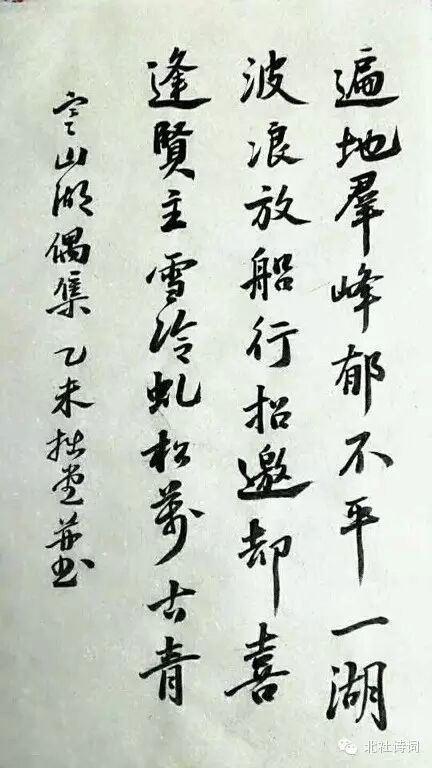 遍地羣峰郁不平一湖
波浪放船行招邀却喜
逢賢主雪冷虬松萬古青
定山湖偶集乙未拙堂并书
北社诗词